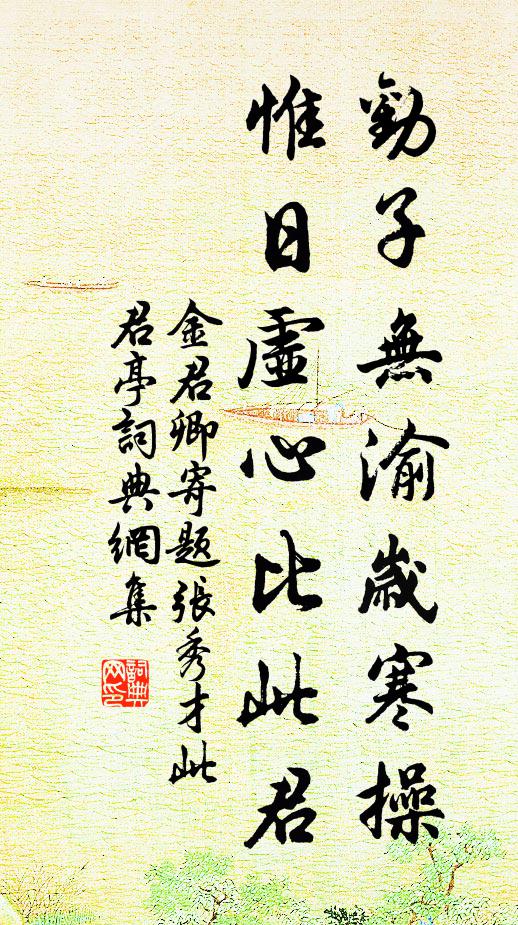 勸子無渝歲寒操
惟日虛心比此君
金君卿寄题張秀才此
君亭詞典網集
詞典网印